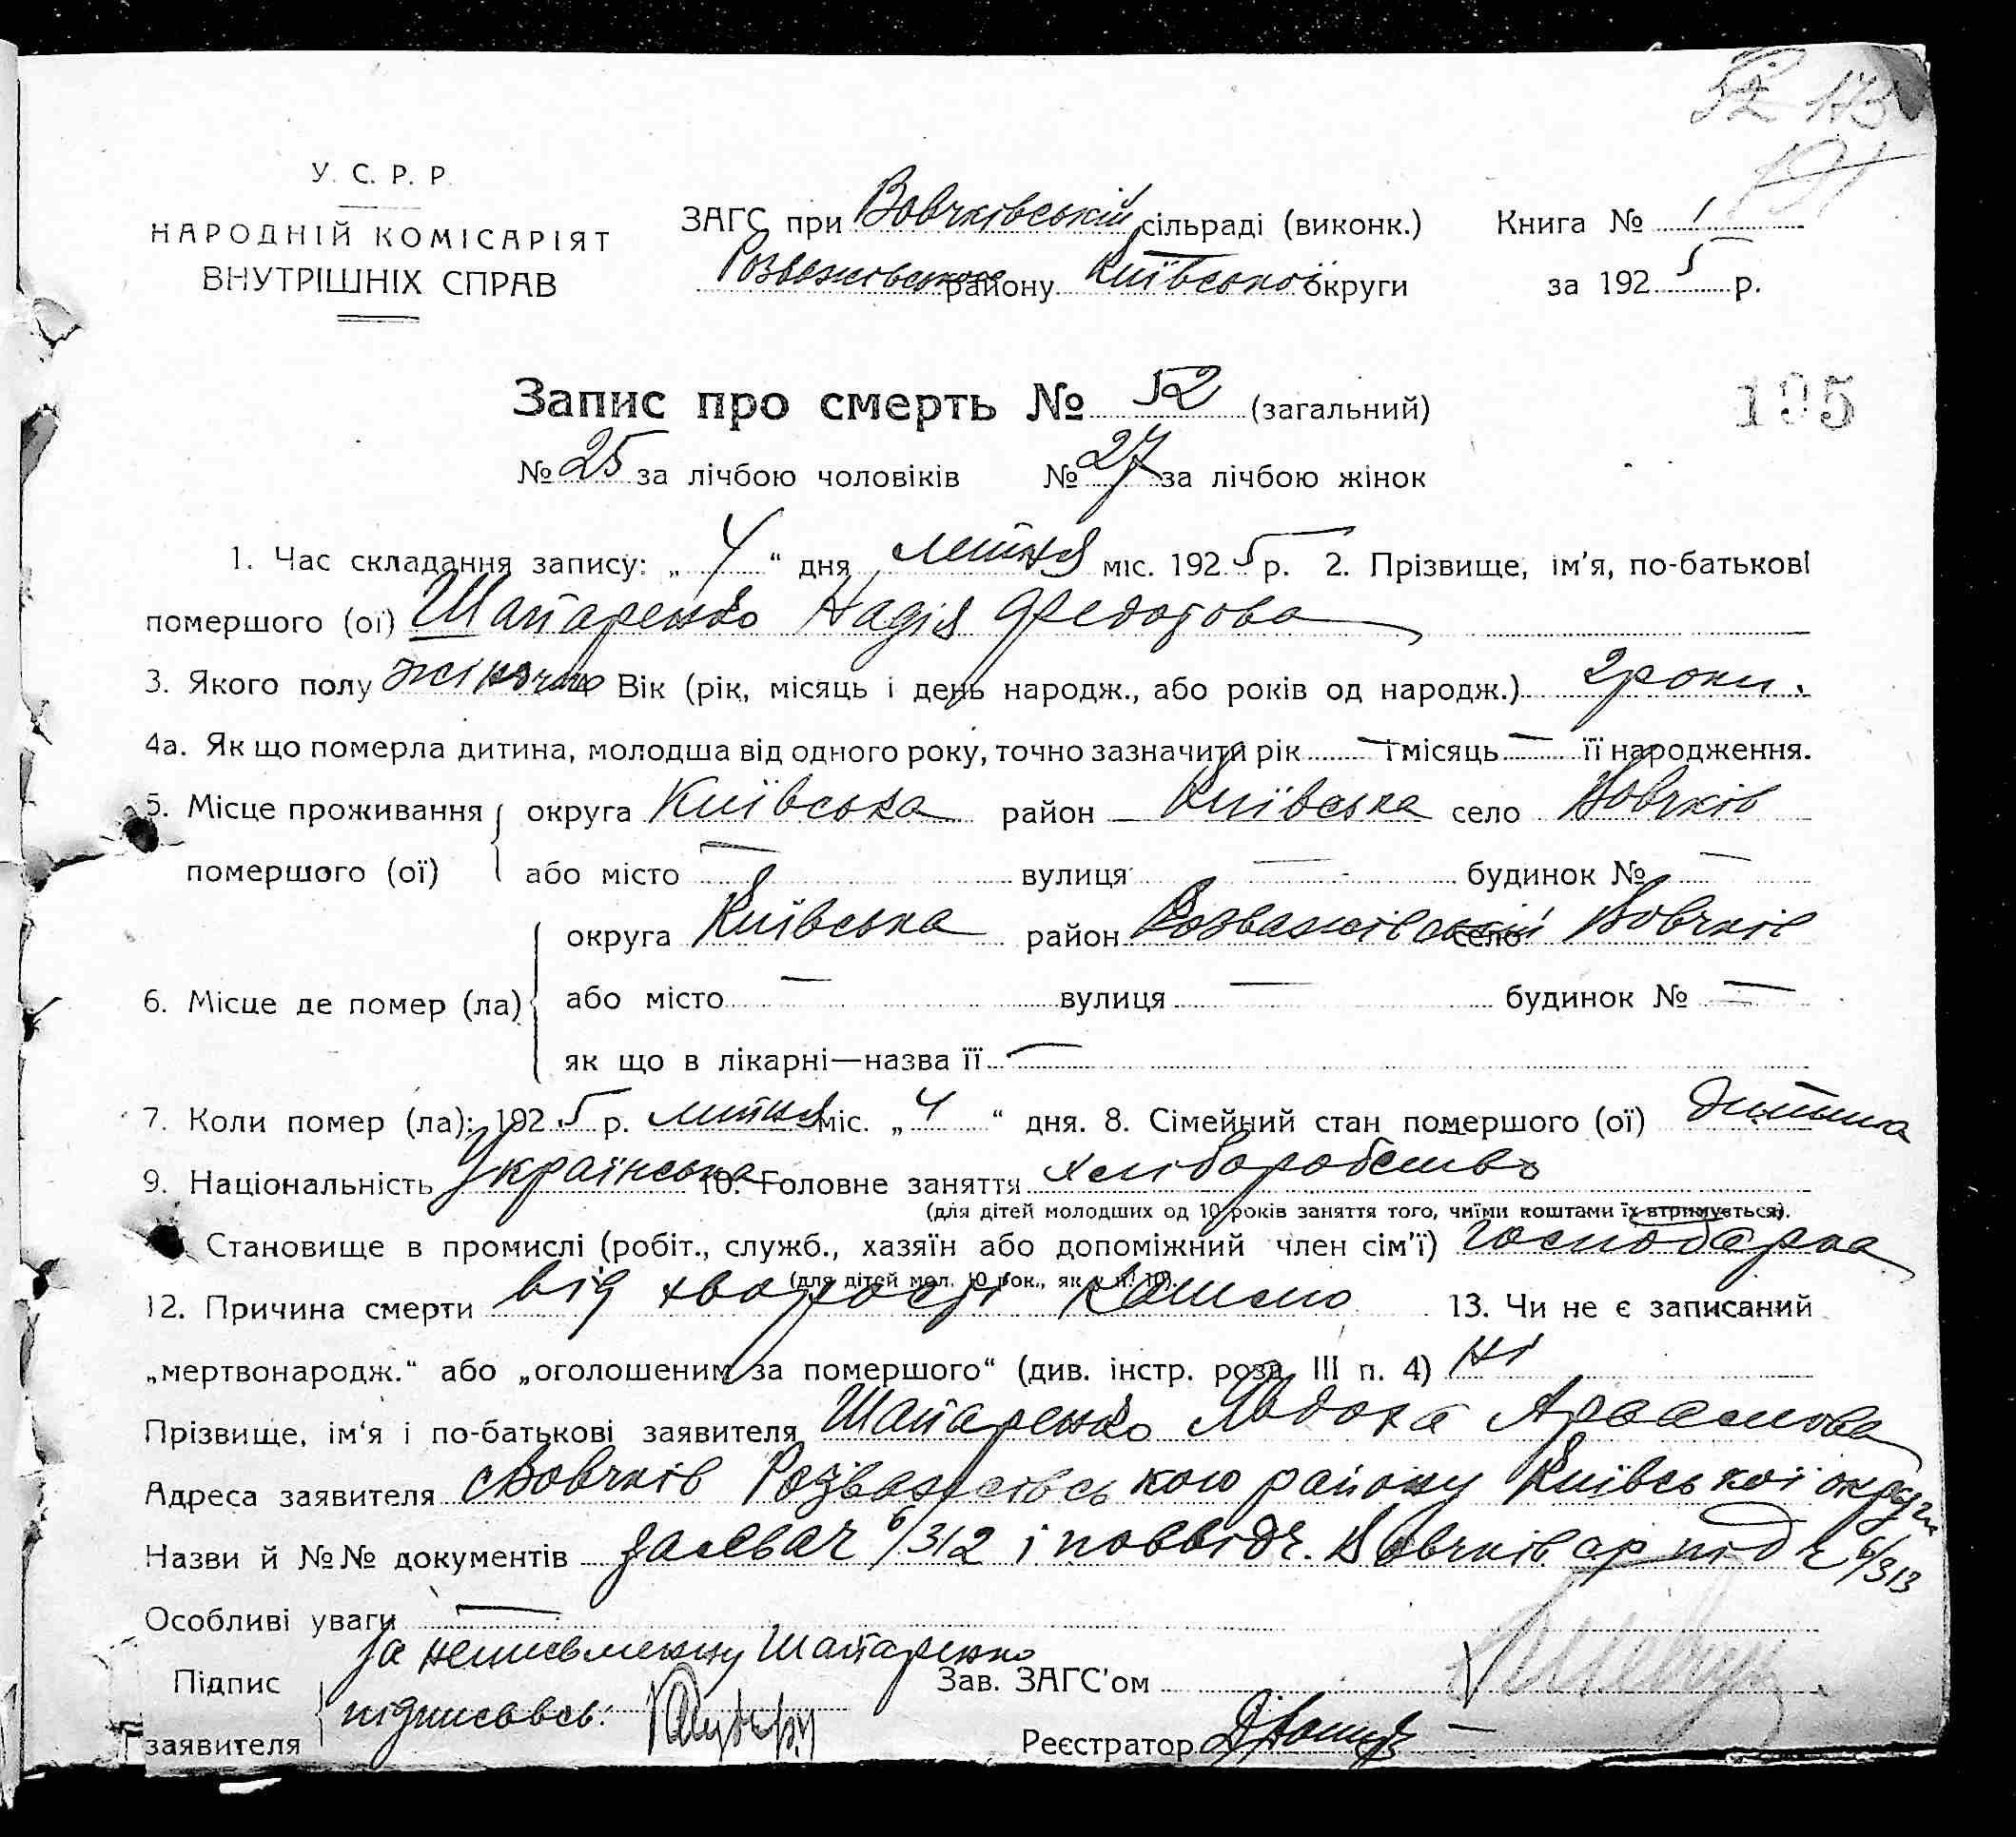 52 173
191
У. С. Р. Р.
НАРОДНІЙ КОМІСАРІЯТ
ВНУТРІШНІХ СПРАВ
ЗАГС при Вовчківській сільраді (виконк.) Книга № 1
Розважівського району Київської округи за 1925 р.
Запис про смерть № 52 (загальний)
195
№ 25 за лічбою чоловіків № 27 за лічбою жінок
1. Час складання запису: „4“ дня липня міс. 1925 р. 2. Прізвище, ім'я, по-батькові
помершого (ої) Шапаренко Надія Федорова
3. Якого полу жіночого Вік (рік, місяць і день народж., або років од народж.) 2 роки.
4а. Як що померла дитина, молодша від одного року, точно зазначити рік — і місяць — її народження.
5. Місце проживання округа Київська район Київська село Вовчків
помершого (ої) або місто — вулиця — будинок № —
округа Київська район Розважівський село Вовчків
6. Місце де помер (ла) або місто — вулиця — будинок № —
як що в лікарні—назва її —
7. Коли помер (ла): 1925 р. липня міс. „4“ дня. 8. Сімейний стан помершого (ої) дитина
9. Національність Українська 10. Головне заняття хліборобство
(для дітей молодших од 10 років заняття того, чиїми коштами їх втримується).
Становище в промислі (робіт., служб., хазяїн або допоміжний член сім'ї) господарка
(для дітей мол. 10 рок., як у п. 10).
12. Причина смерти від хворости кашлю 13. Чи не є записаний
„мертвонародж.“ або „оголошеним за помершого“ (див. інстр. розд. III п. 4) Ні
Прізвище, ім'я і по-батькові заявителя Шапаренко Явдоха
Адреса заявителя с Вовчків Розважівського району Київської округи
Назви й №№ документів 6/312 і Вовчків ч 6/313
Особливі уваги —
за неписьменну Шапаренко
Підпис підписавсь: Зав. ЗАГС'ом
заявителя Реєстратор